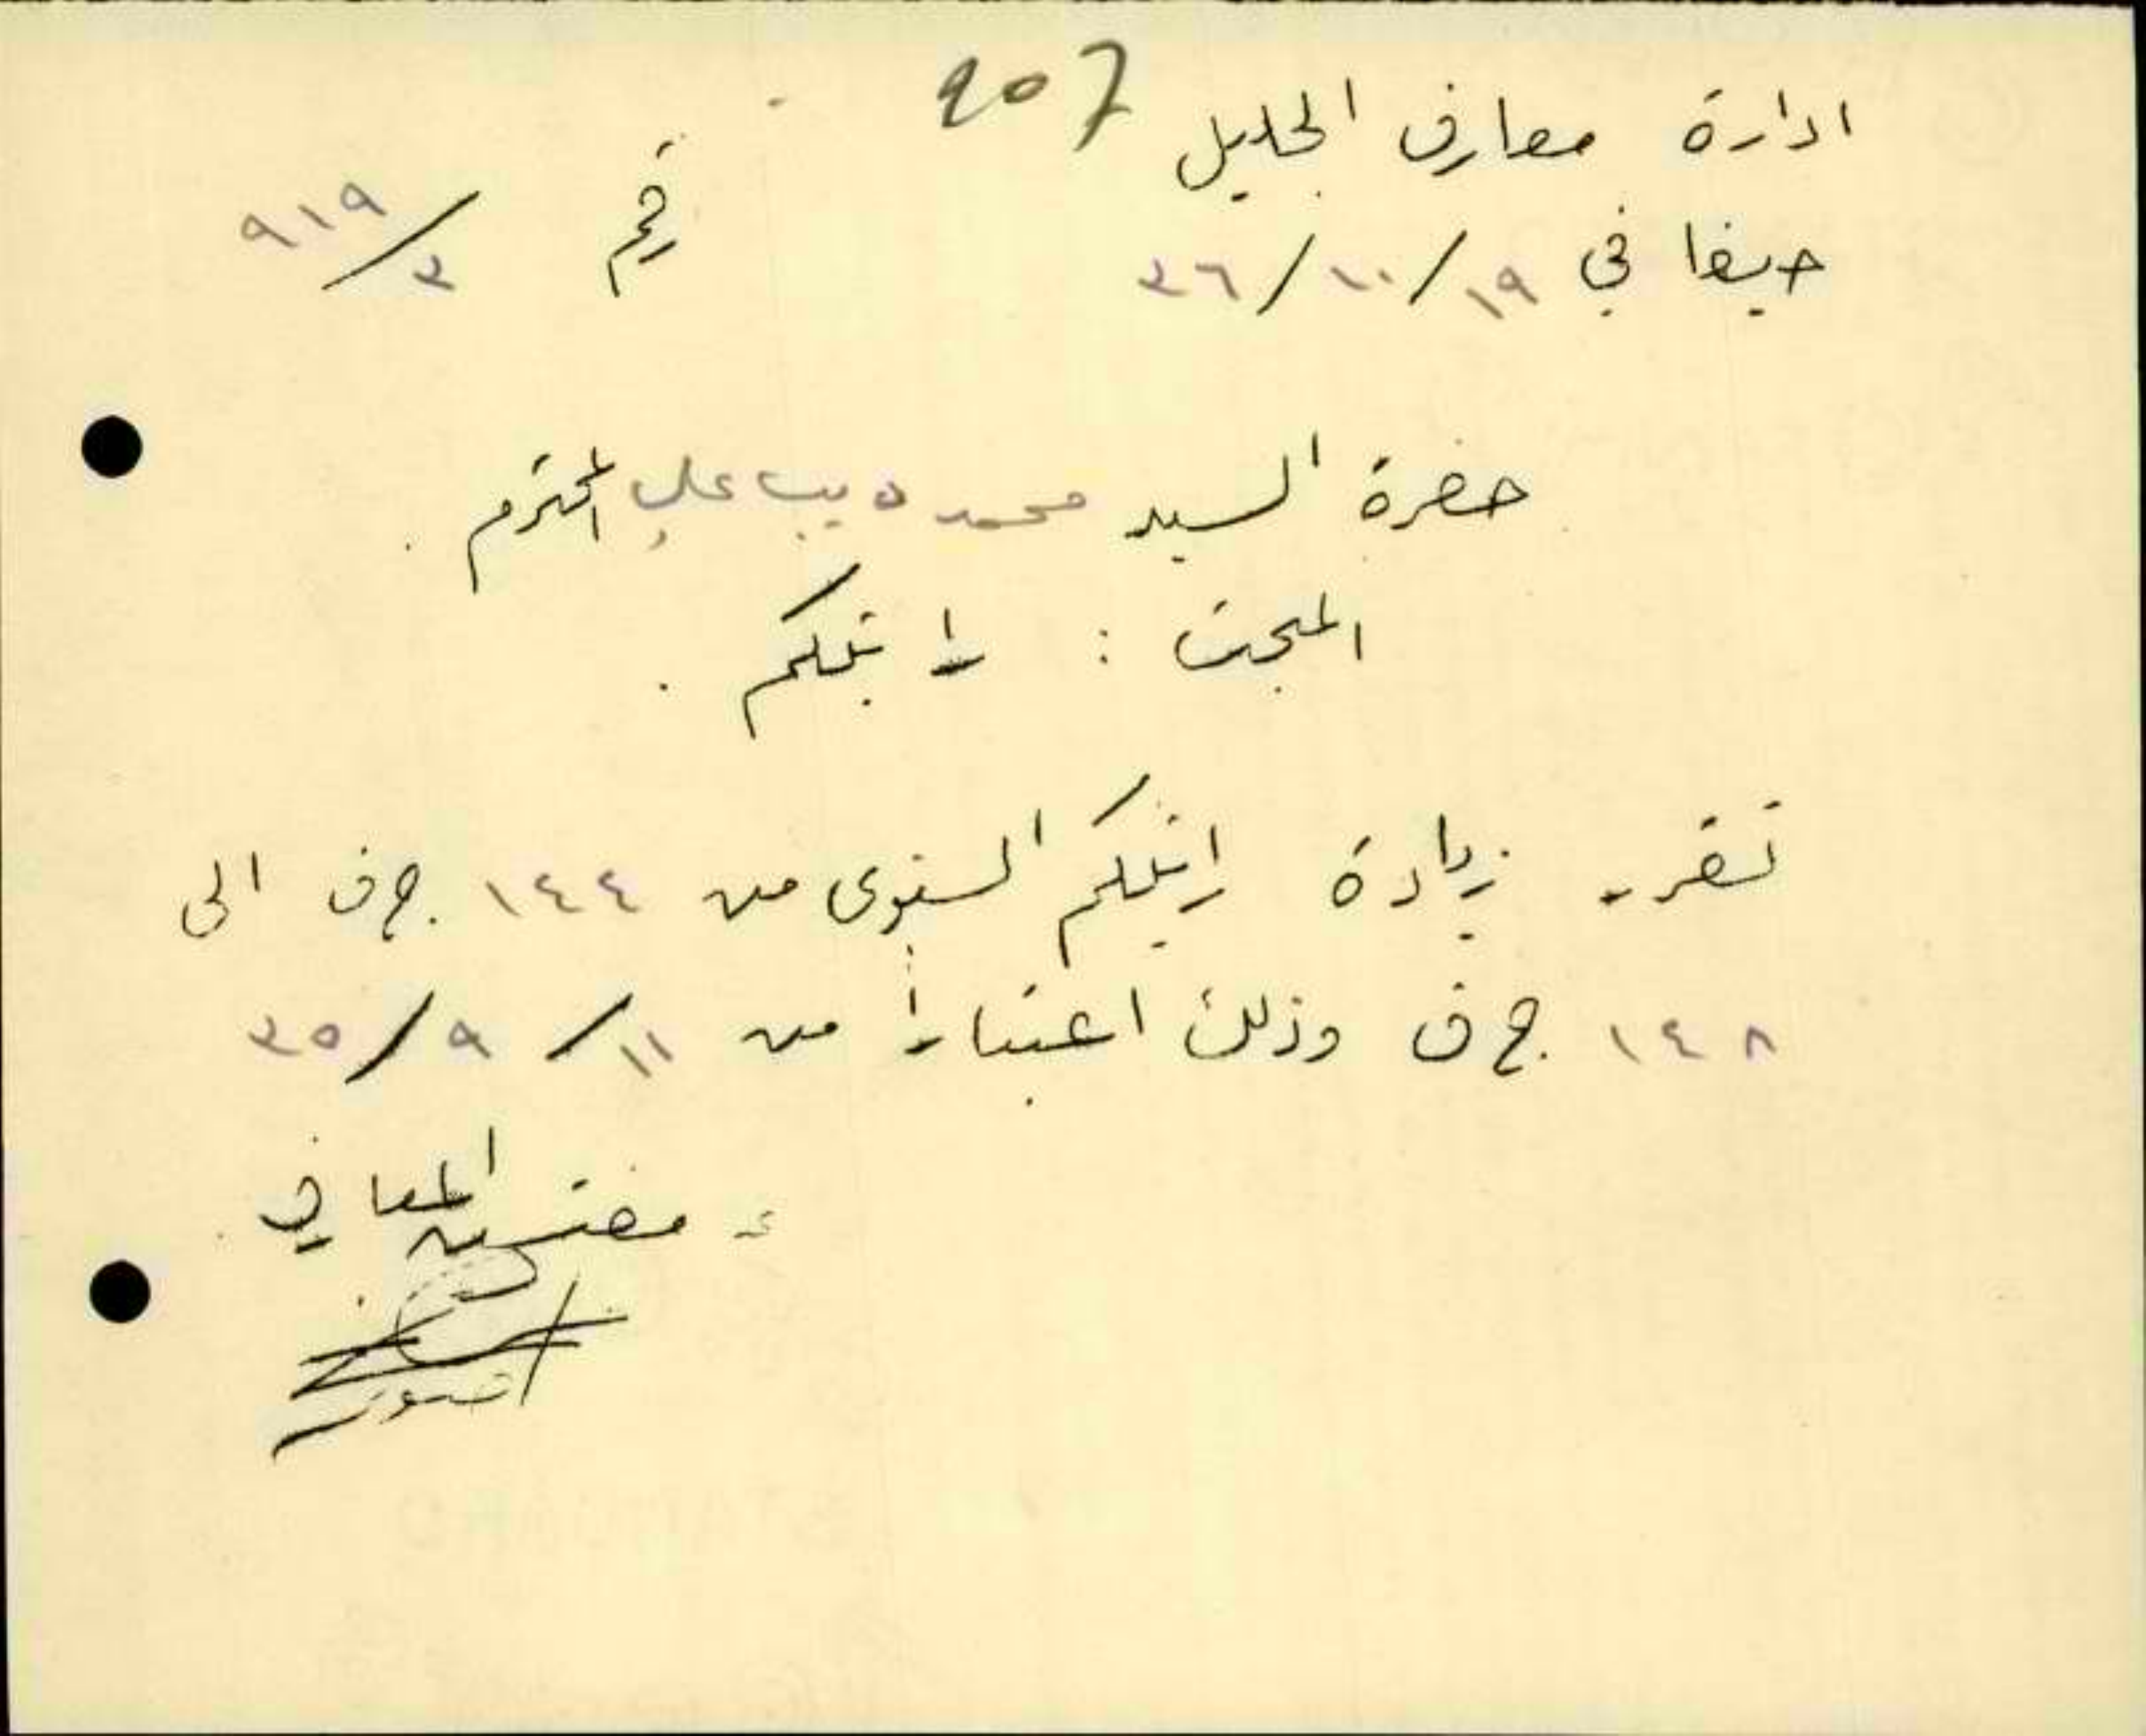 907
ادارة معارف الجليل
رقم ٣/٩١٩
حيفا في ١٩/١٠/٣٦
حضرة السيد محمد ديب علي المحترم .
المبحث : راتبكم .
تقرر زيادة راتبكم السنوي من ١٤٤ ج ف الى
١٤٨ ج ف وذلك اعتباراً من ١١/٩/٣٥
مفتش المعارف